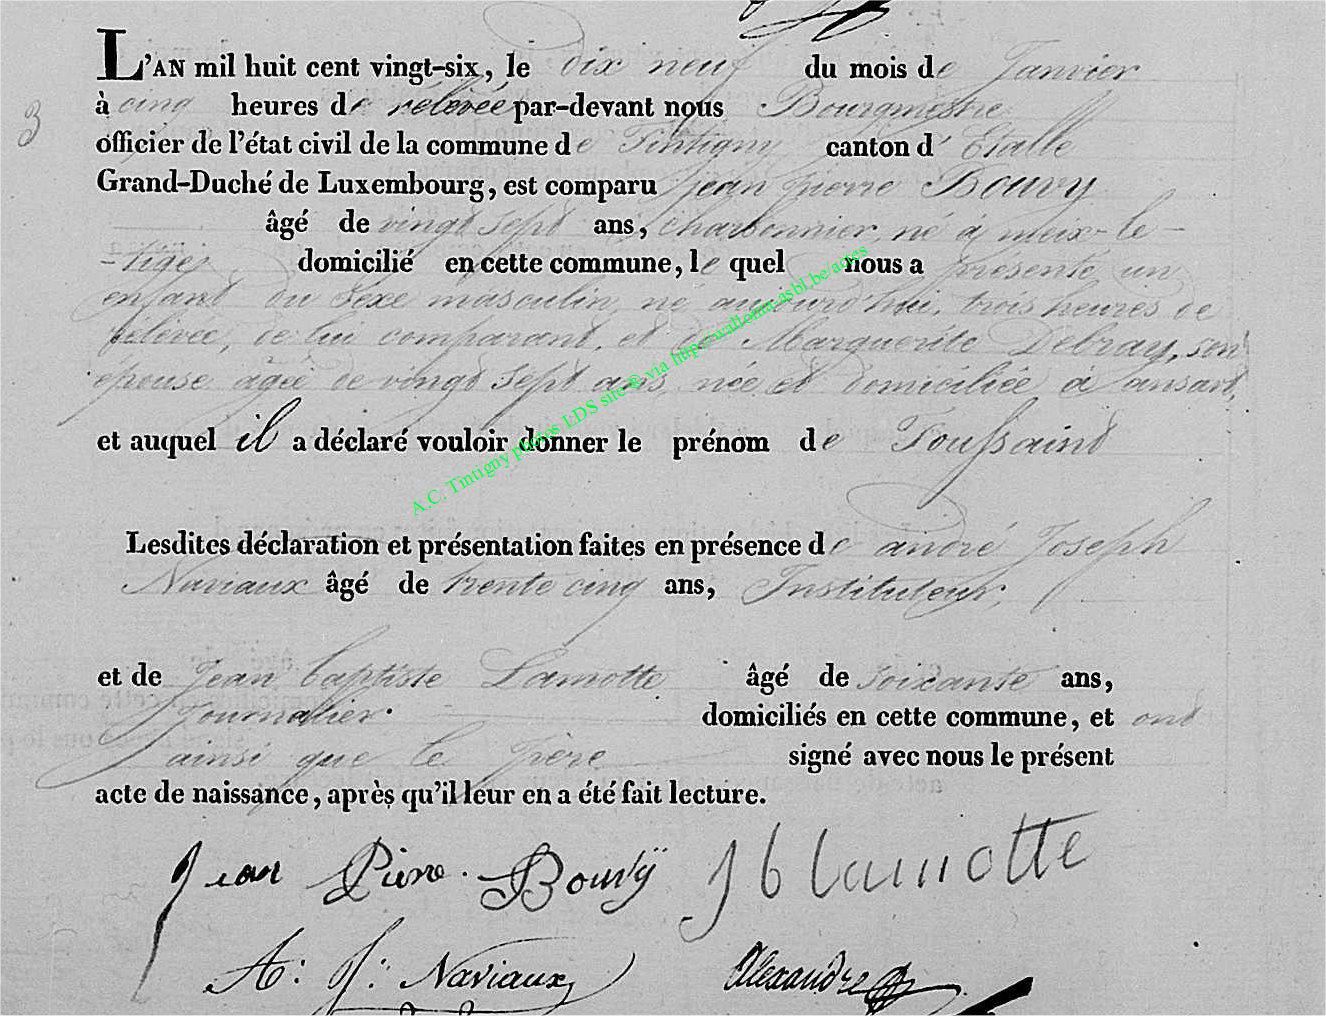 L'AN mil huit cent vingt-six, le dix neuf du mois de Janvier
3
à cinq heures de rélévée par-devant nous Bourgmestre
officier de l'état civil de la commune de Tintigny canton d' Etalle
Grand-Duché de Luxembourg, est comparu Jean Pierre Bouvy
âgé de vingt sept ans, charbonnier, né à meix-le-
-tige, domicilié en cette commune, le quel nous a présenté un
enfant du sexe masculin, né aujourd'hui, trois heures de
rélévée, de lui comparant, et de Marguerite Debray, son
épouse âgée de vingt sept ans, née et domiciliée a ansart,
et auquel il a déclaré vouloir donner le prénom de Toussaint
A.C. Tintigny photos LDS site © via http://wallonia-asbl.be/actes
Lesdites déclaration et présentation faites en présence de andré Joseph
Naviaux âgé de trente cinq ans, Instituteur,
et de Jean baptiste Lamotte âgé de soixante ans,
Journalier. domiciliés en cette commune, et ont
ainsi que le père signé avec nous le présent
acte de naissance, après qu'il leur en a été fait lecture.
Jean Pierre Bouvÿ J b lamotte
A: J: Naviaux Alexandre